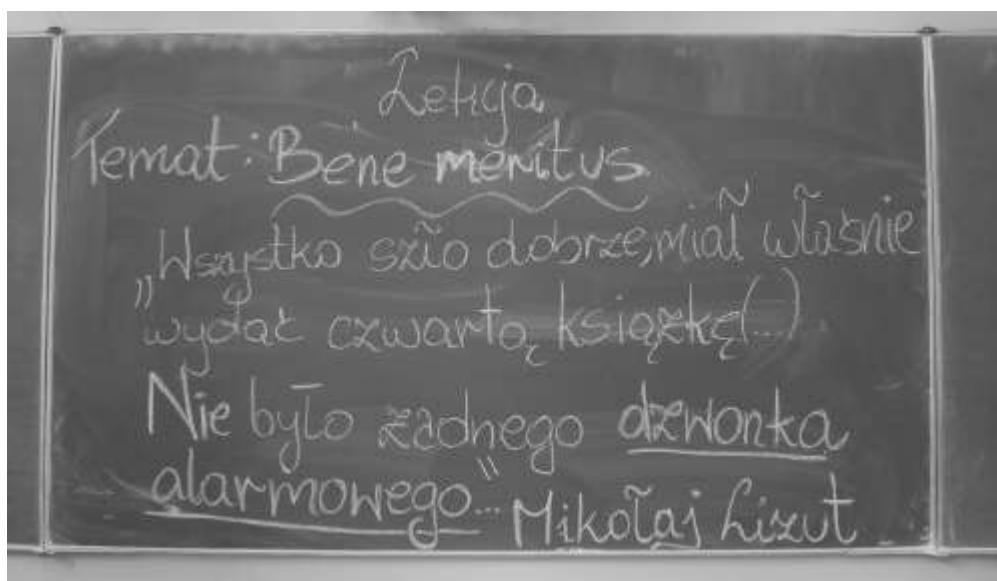 Lekcja
Temat: Bene meritus
„Wszystko szło dobrze, miał właśnie
wydać czwartą książkę (...)
Nie było żadnego dzwonka
alarmowego..." Mikołaj Lizut